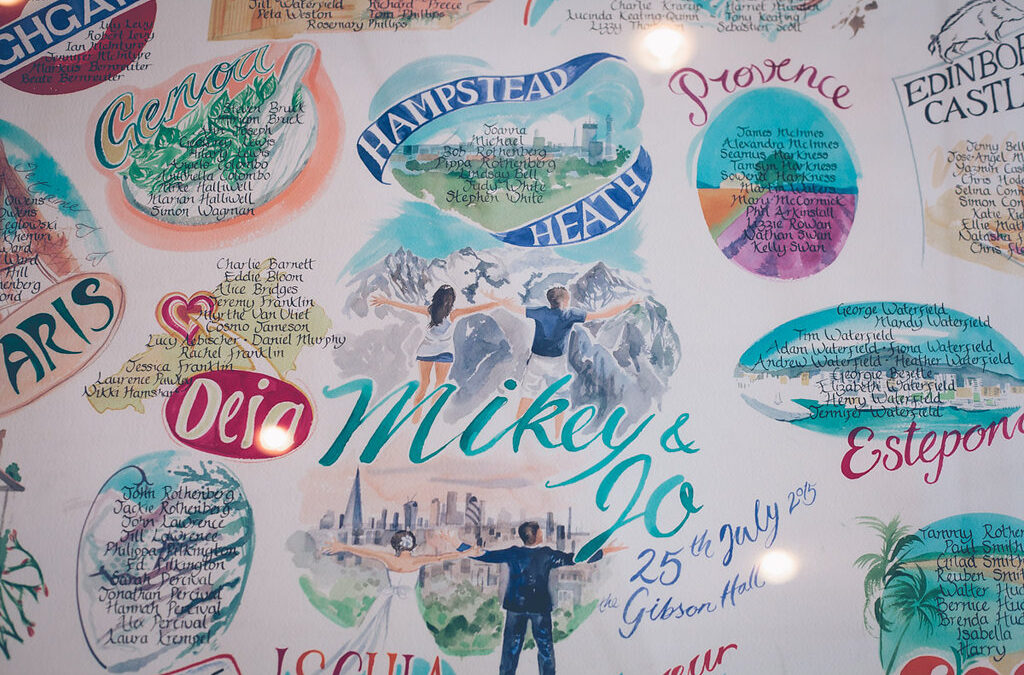 GHGA
Lulu Levy
Robert Levy
Ian McIntyre
Jennifer McIntyre
Markus Bernreuter
Beate Bernreuter
Jill Waterfield
Peta Weston
Richard Preece
Tom Phillips
Rosemary Phillips
Charlie Krarup
Lucinda Keating Quinn
Lizzy
Harriet
Tony Keating
Sebastien Scott
Genoa
Steven Bruck
Miriam Bruck
Joseph
Lewis
Lewis
Angelo Colombo
Antonella Colombo
Mike Halliwell
Marian Halliwell
Simon Wagman
HAMPSTEAD
HEATH
Joanna
Michael
Bob Rothenberg
Pippa Rothenberg
Lindsay Bell
Judy White
Stephen White
Provence
James McInnes
Alexandra McInnes
Seamus Harkness
Tamsyn Harkness
Harkness
Martin Waters
Mary McCormick
Phil Arkinstall
Lizzie Rowan
Nathan Swan
Kelly Swan
EDINBO
CASTL
Jenny Bell
Jose-Angel M
Yazmin Cas
Chris
Selina Con
Simon Con
Katie Ri
Ellie Math
Natasha
Chris
Owens
Owens
Ceglowski
Ward
Ward
Hill
enberg
ond
ARIS
Charlie Barnett
Eddie Bloom
Alice Bridges
Jeremy Franklin
Myrthe Van Vliet
Cosmo Jameson
Lucy Aebischer Daniel Murphy
Rachel Franklin
Jessica Franklin
Laurence
Nikki Hamshar
Deia
Mikey &
Jo
25th July 2015
the Gibson Hall
George Waterfield
Mandy Waterfield
Tim Waterfield
Adam Waterfield Fiona Waterfield
Andrew Waterfield Heather Waterfield
Georgie Bezette
Elizabeth Waterfield
Henry Waterfield
Jennifer Waterfield
Estepon
John Rothenberg
Jackie Rothenberg
John Lawrence
Jill Lawrence
Philippa Pilkington
Ed Pilkington
Sarah Percival
Jonathan Percival
Hannah Percival
Alex Percival
Laura Krempel
ISCHIA
Tammy Rothe
Paul Smith
Gilad Smith
Reuben Smith
Walter Hud
Bernice Hud
Brenda Hud
Isabella
Harry